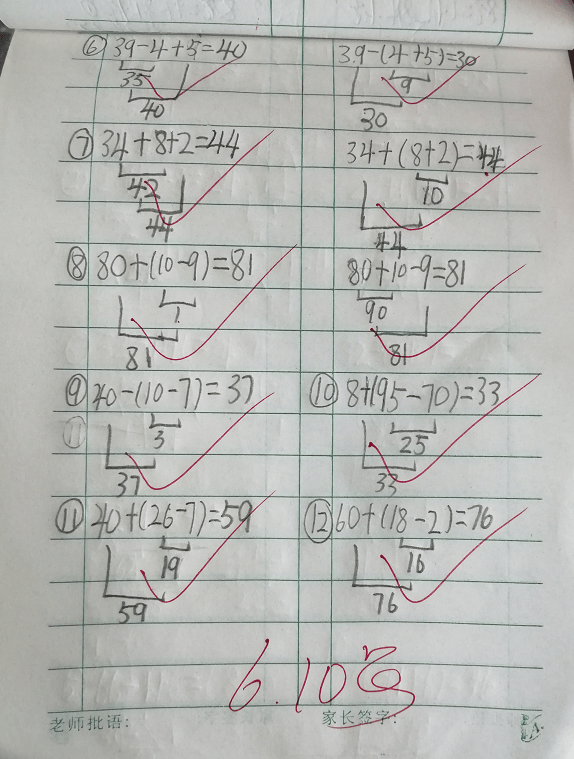 ⑥ 39-4+5=40 39-(4+5)=30
35 9
40 30
⑦ 34+8+2=44 34+(8+2)=44
42 10
44 44
⑧ 80+(10-9)=81 80+10-9=81
1 90
81 81
⑨ 40-(10-7)=37 ⑩ 8+(95-70)=33
3 25
37 33
⑪ 40+(26-7)=59 ⑫ 60+(18-2)=76
19 16
59 76
6.10
老师批语: 家长签字: